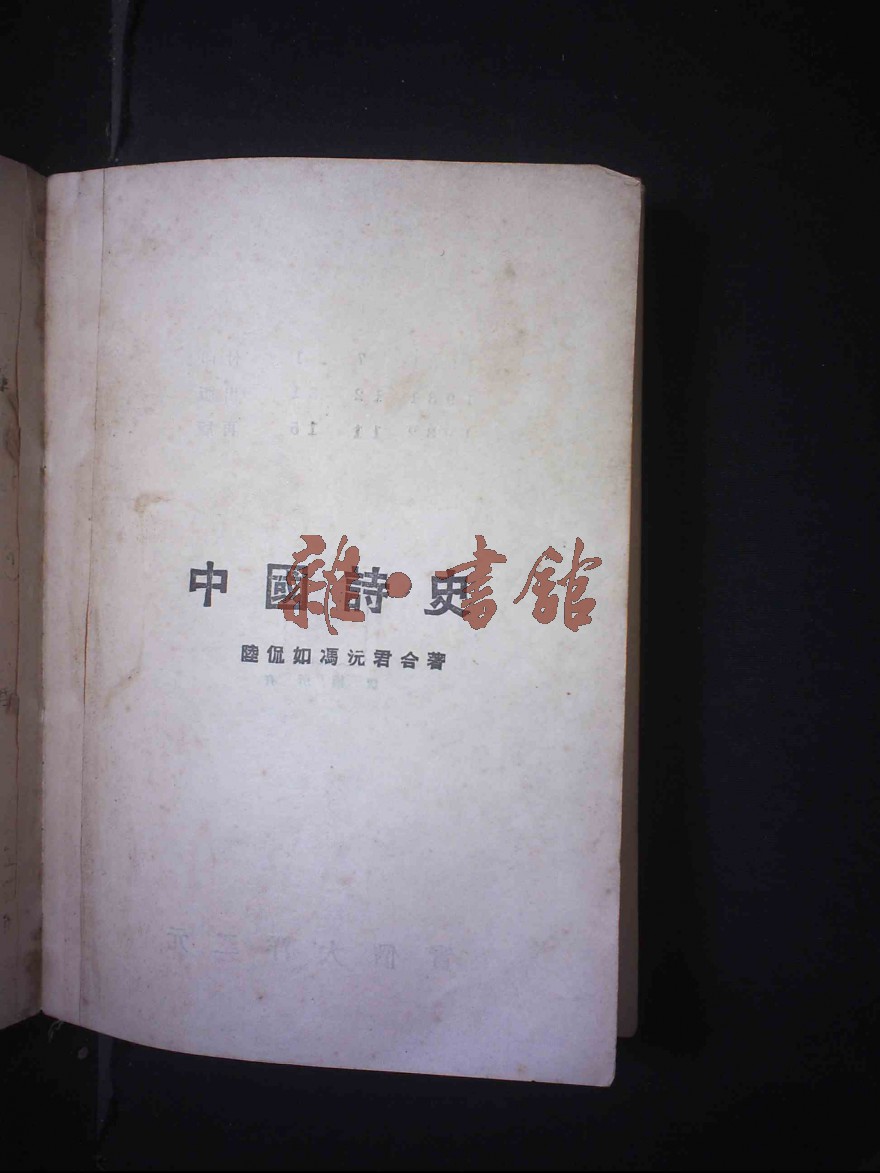 中國詩史
雜·書館
陸侃如馮沅君合著